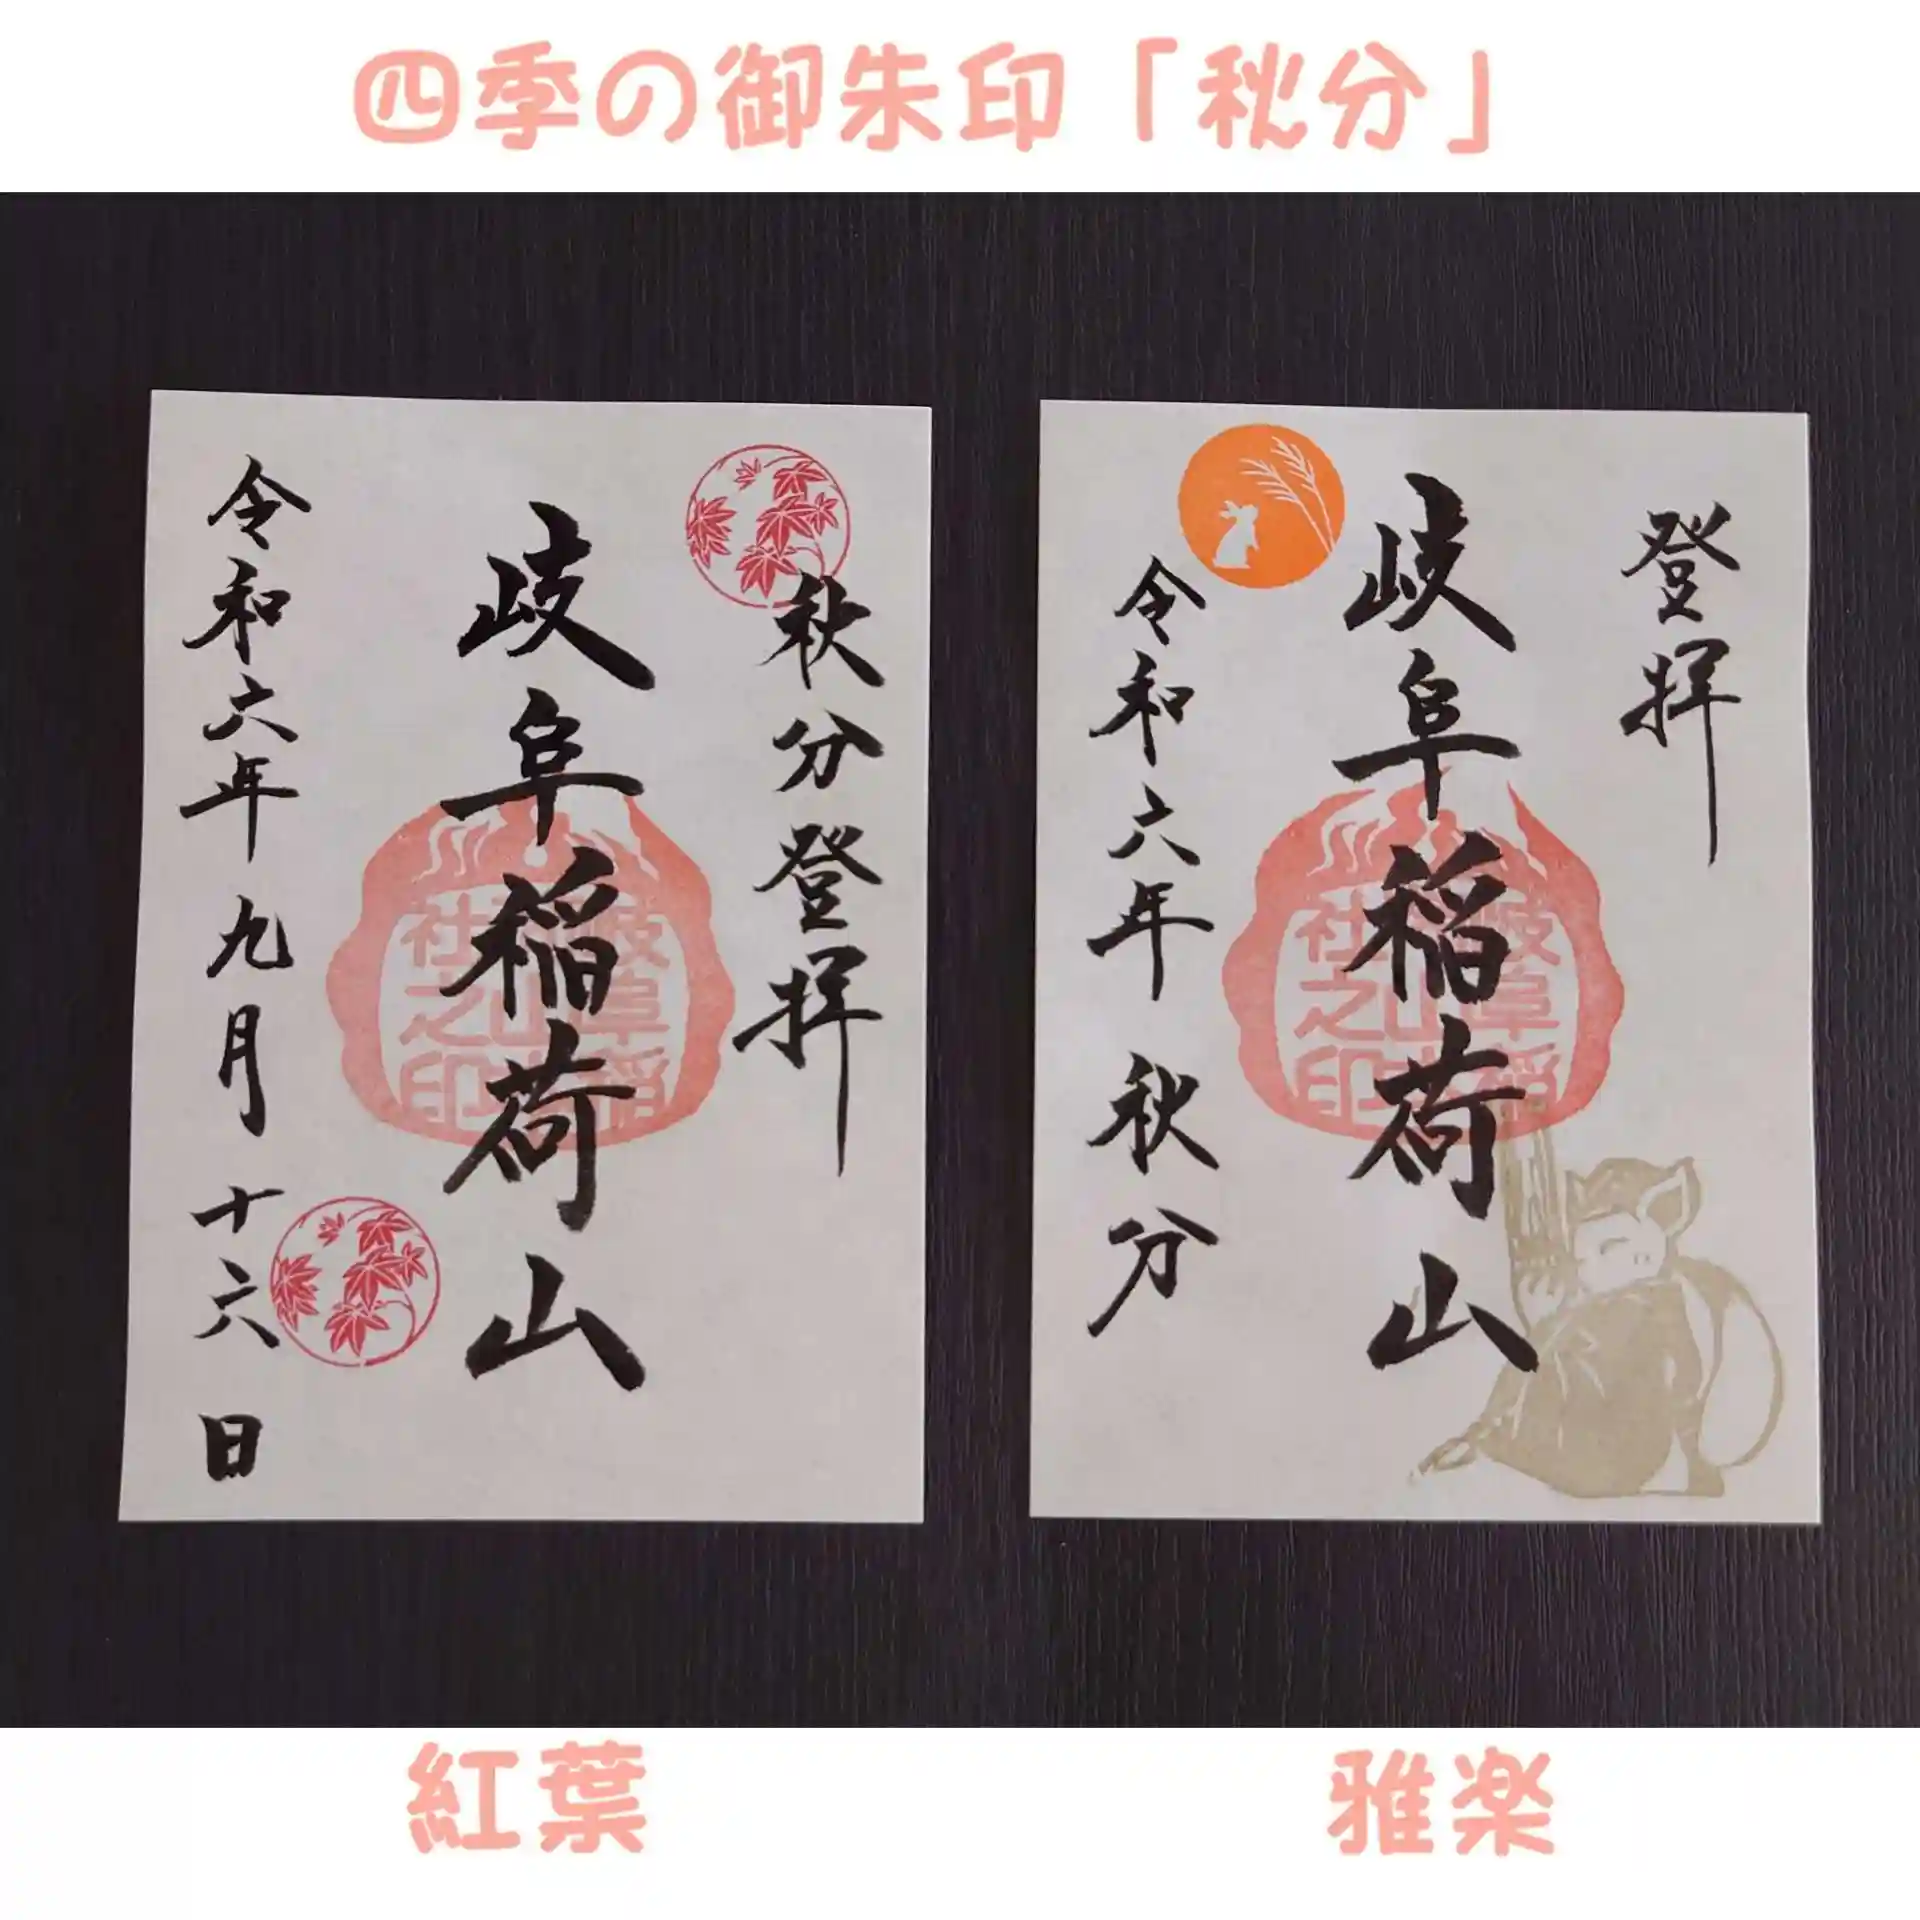 四季の御朱印「秋分」
秋分登拝
岐阜稲荷山
令和六年九月十六日
社之印
登拝
岐阜稲荷山
令和六年秋分
社之印
紅葉
雅楽